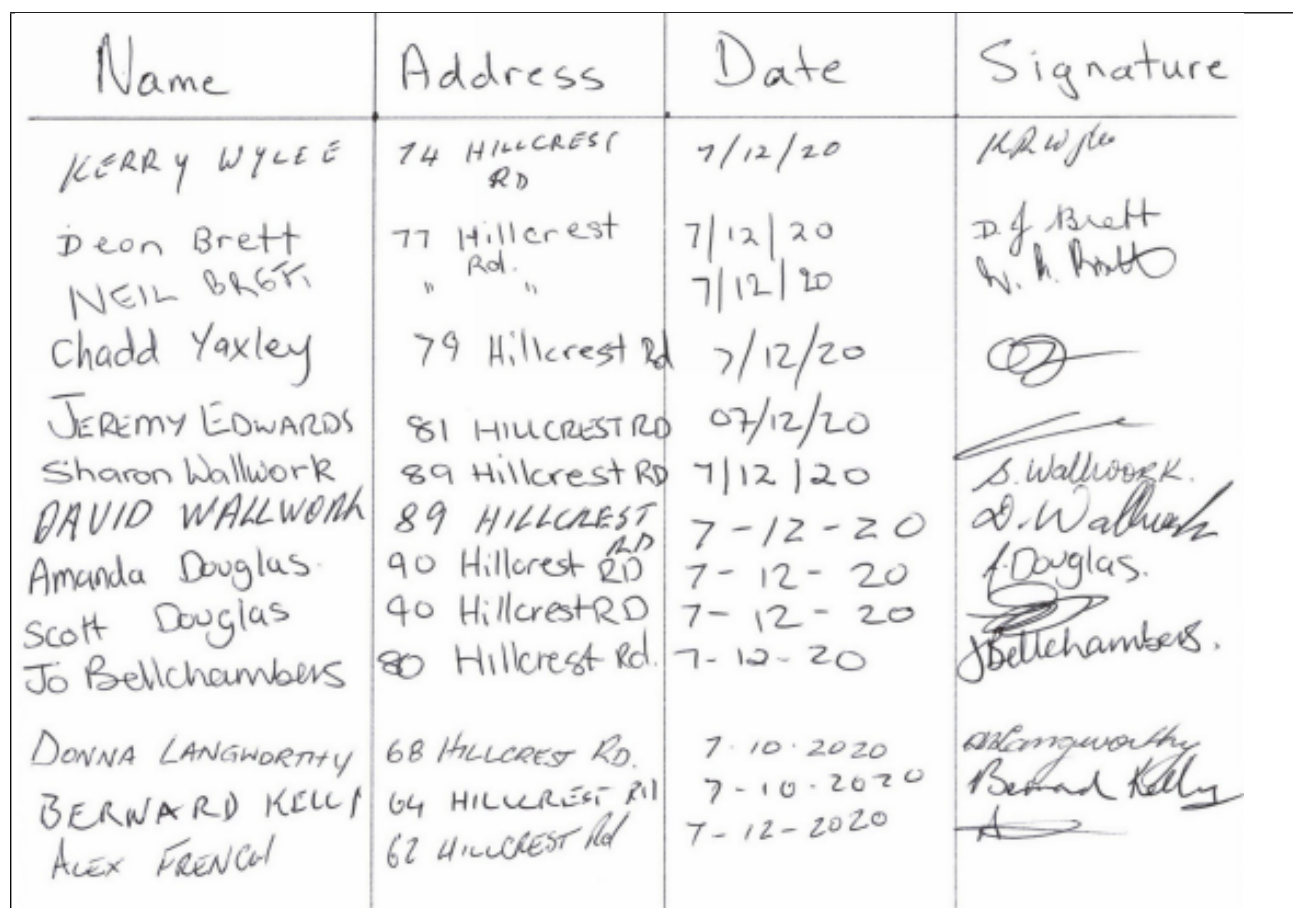 Name Address Date Signature
KERRY WYLEE 74 HILLCREST RD 7/12/20
Deon Brett 77 Hillcrest Rd. 7/12/20 D J Brett
NEIL BRETT " " 7/12/20
Chadd Yaxley 79 Hillcrest Rd 7/12/20
JEREMY EDWARDS 81 HILLCREST RD 07/12/20
Sharon Wallwork 89 Hillcrest RD 7/12/20 S. Wallwork.
DAVID WALLWORK 89 HILLCREST RD 7-12-20 D. Wallwork
Amanda Douglas. 90 Hillcrest RD 7-12-20 A. Douglas.
Scott Douglas 90 Hillcrest RD 7-12-20
Jo Bellchambers 80 Hillcrest Rd. 7-12-20 JBellchambers.
DONNA LANGWORTHY 68 HILLCREST RD. 7.10.2020 Langworthy
BERNARD KELLY 64 HILLCREST RD 7-10-2020 Bernard Kelly
ALEX FRENCH 62 HILLCREST Rd 7-12-2020